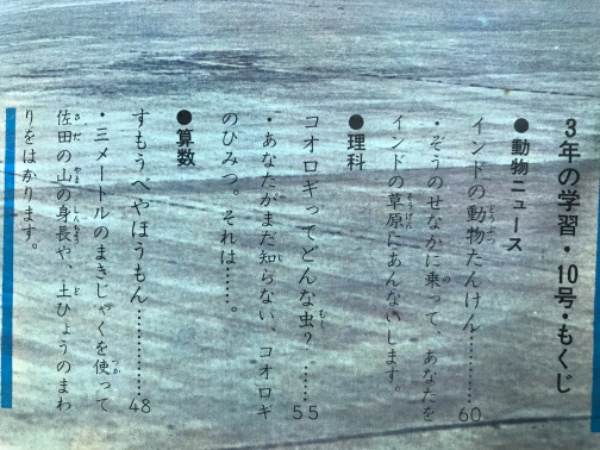 3年の学習・10号・もくじ
●動物ニュース
インドの動物たんけん…………60
・ぞうのせなかに乗って、あなたを
インドの草原にあんないします。
●理科
コオロギってどんな虫？……55
・あなたがまだ知らない、コオロギ
のひみつ。それは……。
●算数
すもうべやほうもん……………48
・三メートルのまきじゃくを使って
佐田の山の身長や、土ひょうのまわ
りをはかります。